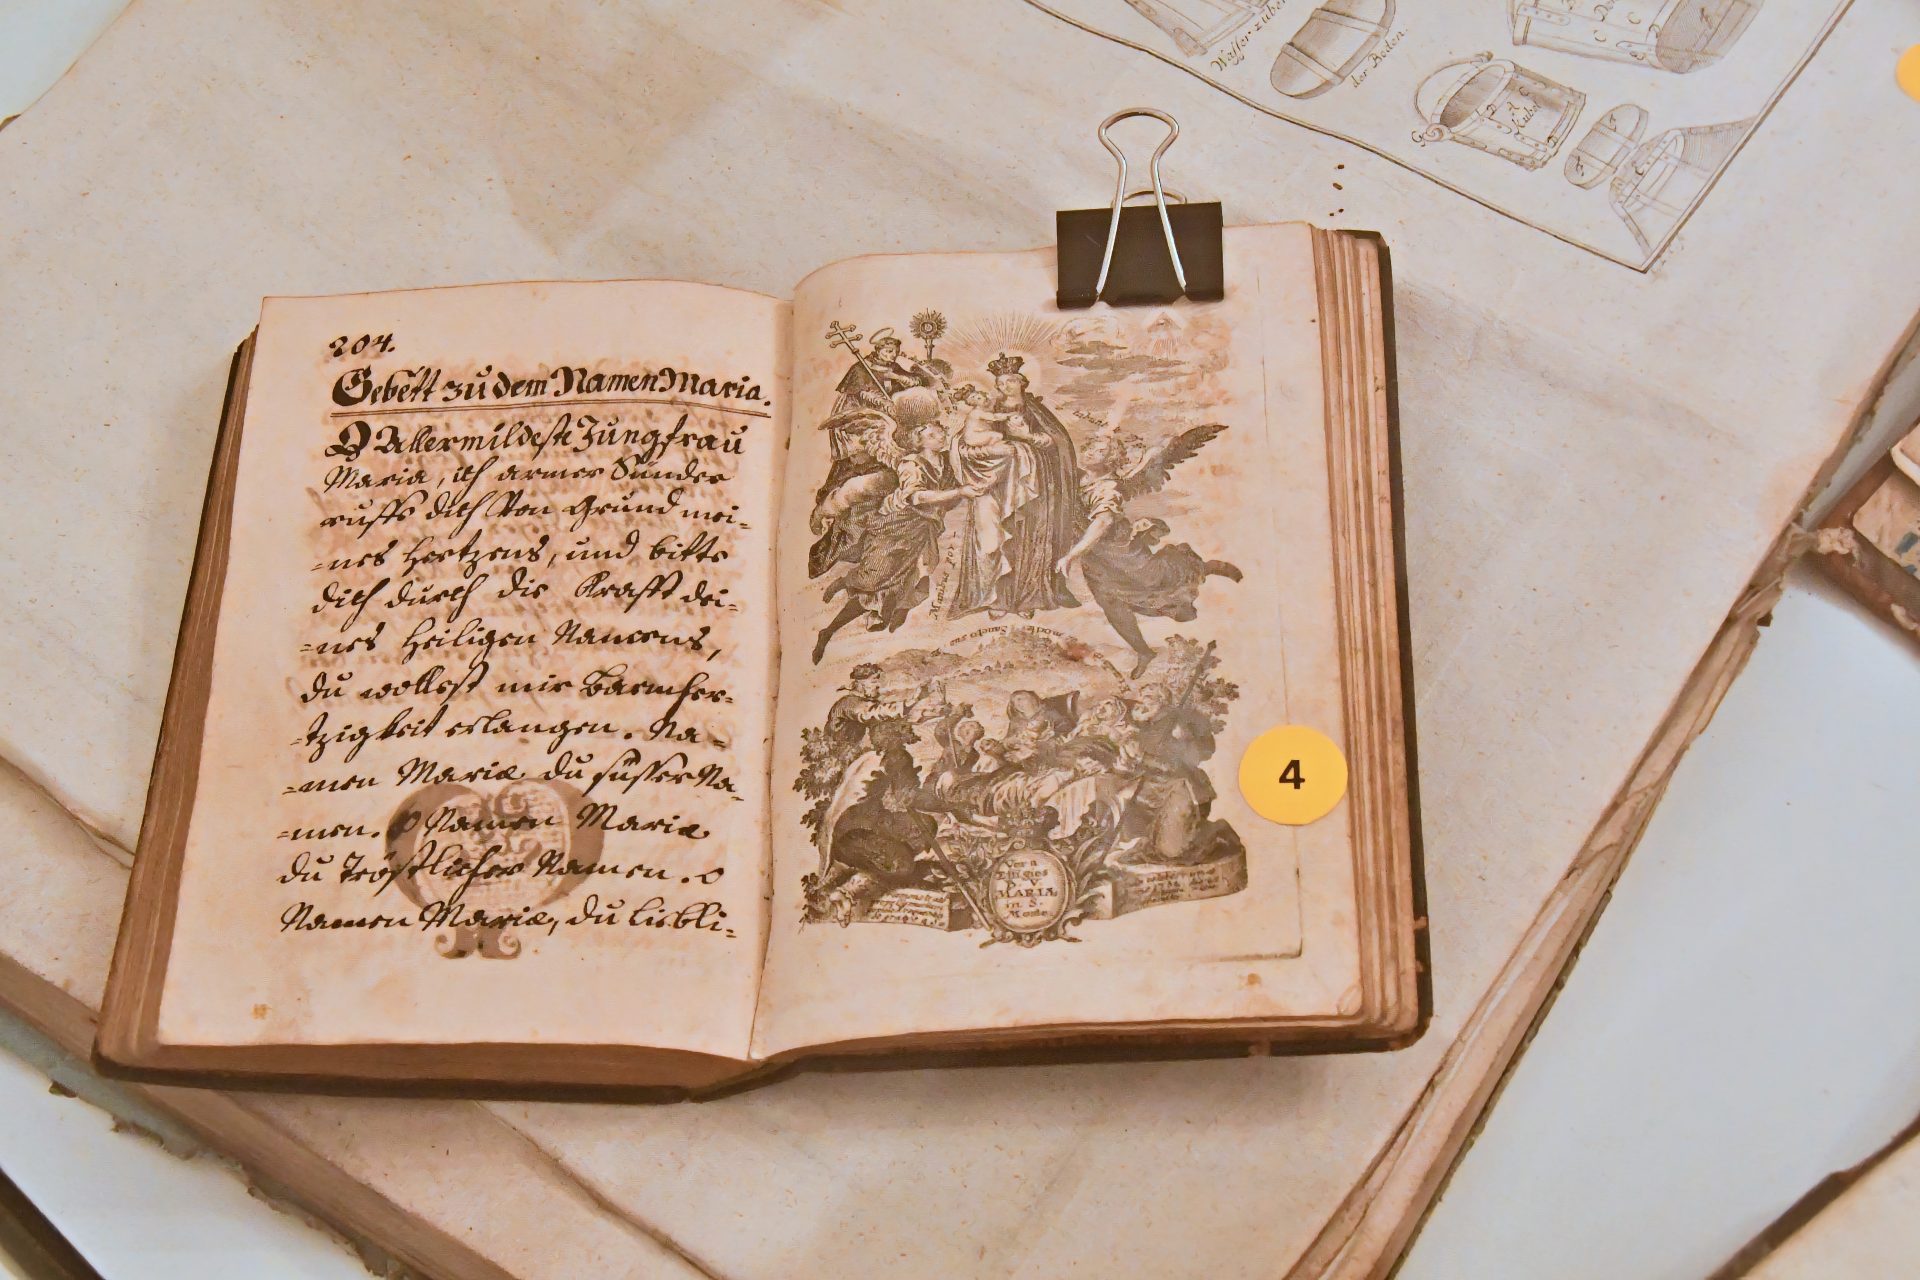 204.
Gebett zu dem Namen Maria.
O Allermildeste Jungfrau
Maria, ich armer Sünder
ruffe dich von Grund mei-
=nes Hertzens, und bitte
dich durch die Krafft dei-
=nes heiligen Namens,
du wollest mir Barmher-
=tzigkeit erlangen. Na-
=men Mariæ du süsser Na-
=men. O Namen Mariæ
du tröstlicher Namen. O
Namen Mariæ, du liebli-
Vera
Effigies
B. V.
MARIÆ
in S.
Monte
4
Wasser-zuber
der Boden.
Kubel